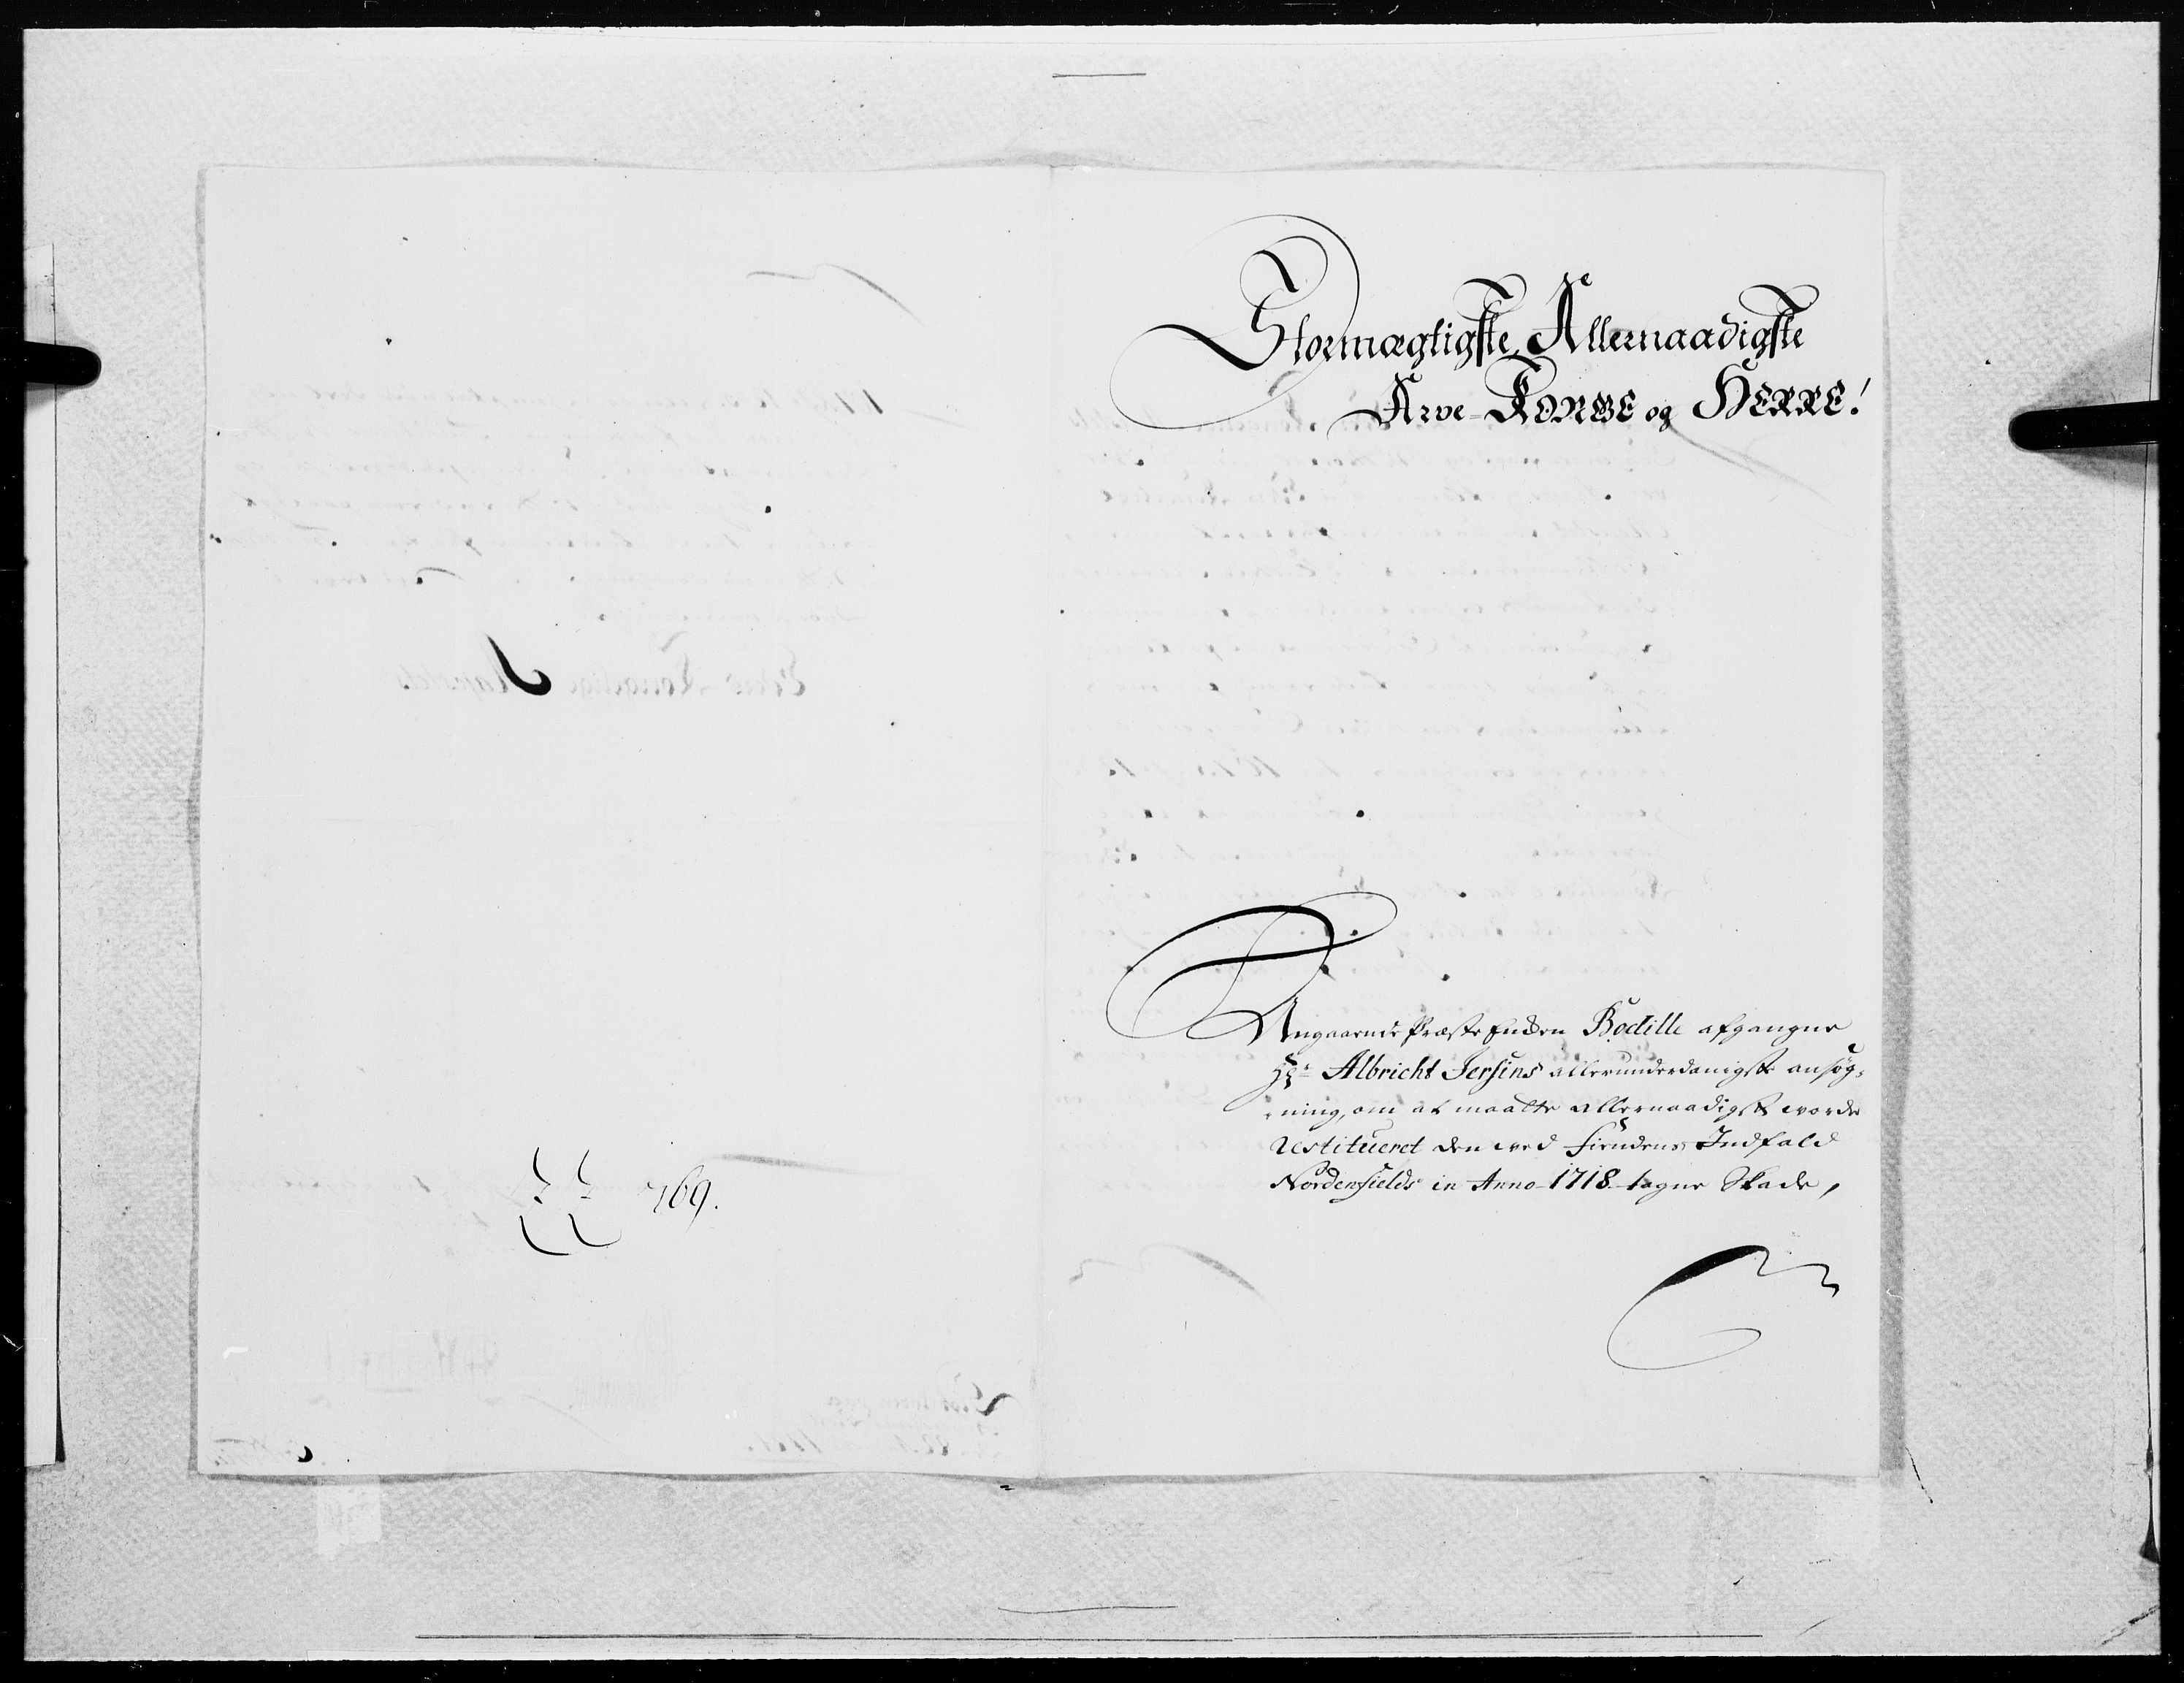 769.
Stormægtigste, Allernaadigste
Arve-KONGE og HERRE!
Angaaende Præste Enken Bodille afgangne
Hr. Albricht Jersins allerunderdanigste ansøg-
ning, om at maatte allernaadigst worde
restitueret den ved Fiendens Indfald
Nordenfields in Anno 1718 tagne Skade,